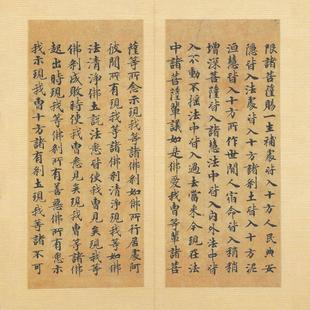 限諸菩薩賜一主補處皆入十方人民典
隱皆入法處皆入十方諸刹土皆入十方泥
洹慧皆入十方所作世間人宿命皆入稍稍
增深菩薩皆入諸慧法中皆入内外法中皆
入不動不搖法中皆入過去當來今現在法
中諸菩薩輩議如是佛愛我曹等輩諸菩
薩等所念示現我等諸佛刹如佛所行居處
彼間所有現我等諸佛刹清淨現我等
法清淨佛土説法悉皆使我曹見現我等
佛刹成敗時使我曹悉見現我等諸佛
起出時現我等佛刹所有善惡佛所有悉示
我示現我曹十方諸有刹土現我等諸不可